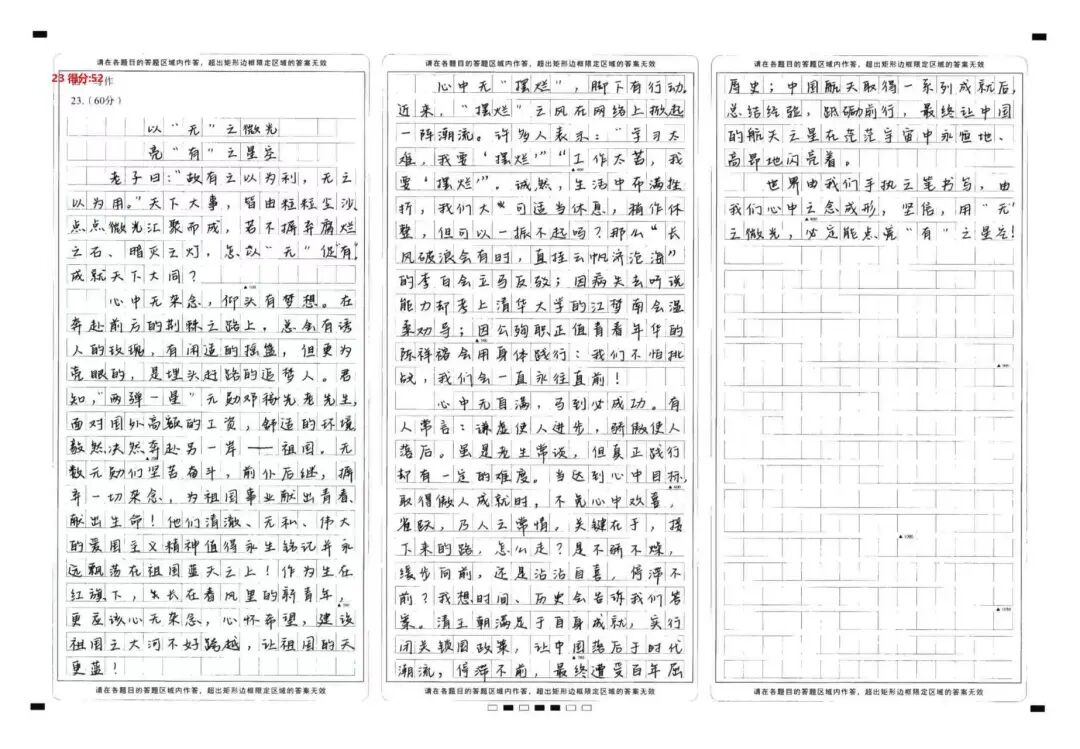 请在各题目的答题区域内作答，超出矩形边框限定区域的答案无效
23 得分:52
写作
23.（60分）
以“无”之微光
亮“有”之星空
老子曰：“故有之以为利，无之
以为用。”天下大事，皆由粒粒尘沙
点点微光汇聚而成，若不摒弃腐烂
之石、暗灭之灯，怎以“无”促“有”，
成就天下大同？
心中无杂念，仰头有梦想。在
奔赴前方的荆棘之路上，总会有诱
人的玫瑰，有闲适的摇篮，但更为
亮眼的，是埋头赶路的追梦人。君
知，“两弹一星”元勋邓稼先老先生，
面对国外高额的工资，舒适的环境
毅然决然奔赴另一岸——祖国。无
数元勋们坚苦奋斗，前仆后继，摒
弃一切杂念，为祖国事业献出青春、
献出生命！他们清澈、无私、伟大
的爱国主义精神值得永生铭记并永
远飘荡在祖国蓝天之上！作为生在
红旗下，长在春风里的新青年，
更应该心无杂念，心怀希望，建设
祖国之大河不好跨越，让祖国的天
更蓝！
请在各题目的答题区域内作答，超出矩形边框限定区域的答案无效
请在各题目的答题区域内作答，超出矩形边框限定区域的答案无效
心中无“摆烂”，脚下有行动。
近来，“摆烂”之风在网络上掀起
一阵潮流。许多人表示：“学习太
难，我要‘摆烂’”“工作太苦，我
要‘摆烂’”。诚然，生活中布满挫
折，我们大可适当休息，稍作休
整，但可以一振不起吗？那么“长
风破浪会有时，直挂云帆济沧海”
的李白会立马反驳；因病失去听说
能力却考上清华大学的江梦南会温
柔劝导；因公殉职正值青春年华的
陈祥榕会用身体践行：我们不怕挑
战，我们会一直永往直前！
心中无自满，马到必成功。有
人常言：谦虚使人进步，骄傲使人
落后。虽是老生常谈，但真正践行
却有一定的难度。当达到心中目标，
取得傲人成就时，不免心中欢喜，
雀跃，乃人之常情，关键在于，接
下来的路，怎么走？是不骄不燥，
缓步向前，还是沾沾自喜，停滞不
前？我想时间、历史会告诉我们答
案。清王朝满足于自身成就，实行
闭关锁国政策，让中国落后于时代
潮流，停滞不前，最终遭受百年屈
请在各题目的答题区域内作答，超出矩形边框限定区域的答案无效
请在各题目的答题区域内作答，超出矩形边框限定区域的答案无效
辱史；中国航天取得一系列成就后，
总结经验，砥砺前行，最终让中国
的航天之星在茫茫宇宙中永恒地、
高昂地闪亮着。
世界由我们手执之笔书写，由
我们心中之念成形，坚信，用“无”
之微光，必定能点亮“有”之星空！
请在各题目的答题区域内作答，超出矩形边框限定区域的答案无效